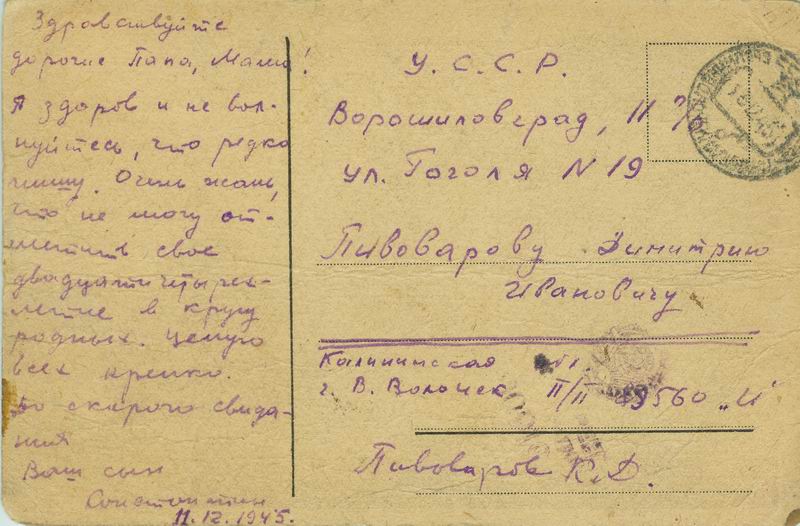 Здравствуйте
дорогие Папа, Мама!
Я здоров и не вол-
нуйтесь, что редко
пишу. Очень жаль,
что не могу от-
метить свое
двадцатичетырех-
летие в кругу
родных. Целую
всех крепко.
До скарого свида-
ния
Ваш сын
Константин
11.12.1945.
У. С. С. Р.
Ворошиловград, 11
ул. Гоголя N 19
Пивоварову Димитрию
Ивановичу
Калининская обл
г. В. Волочек П/П 29560 „И"
Пивоваров К. Д.